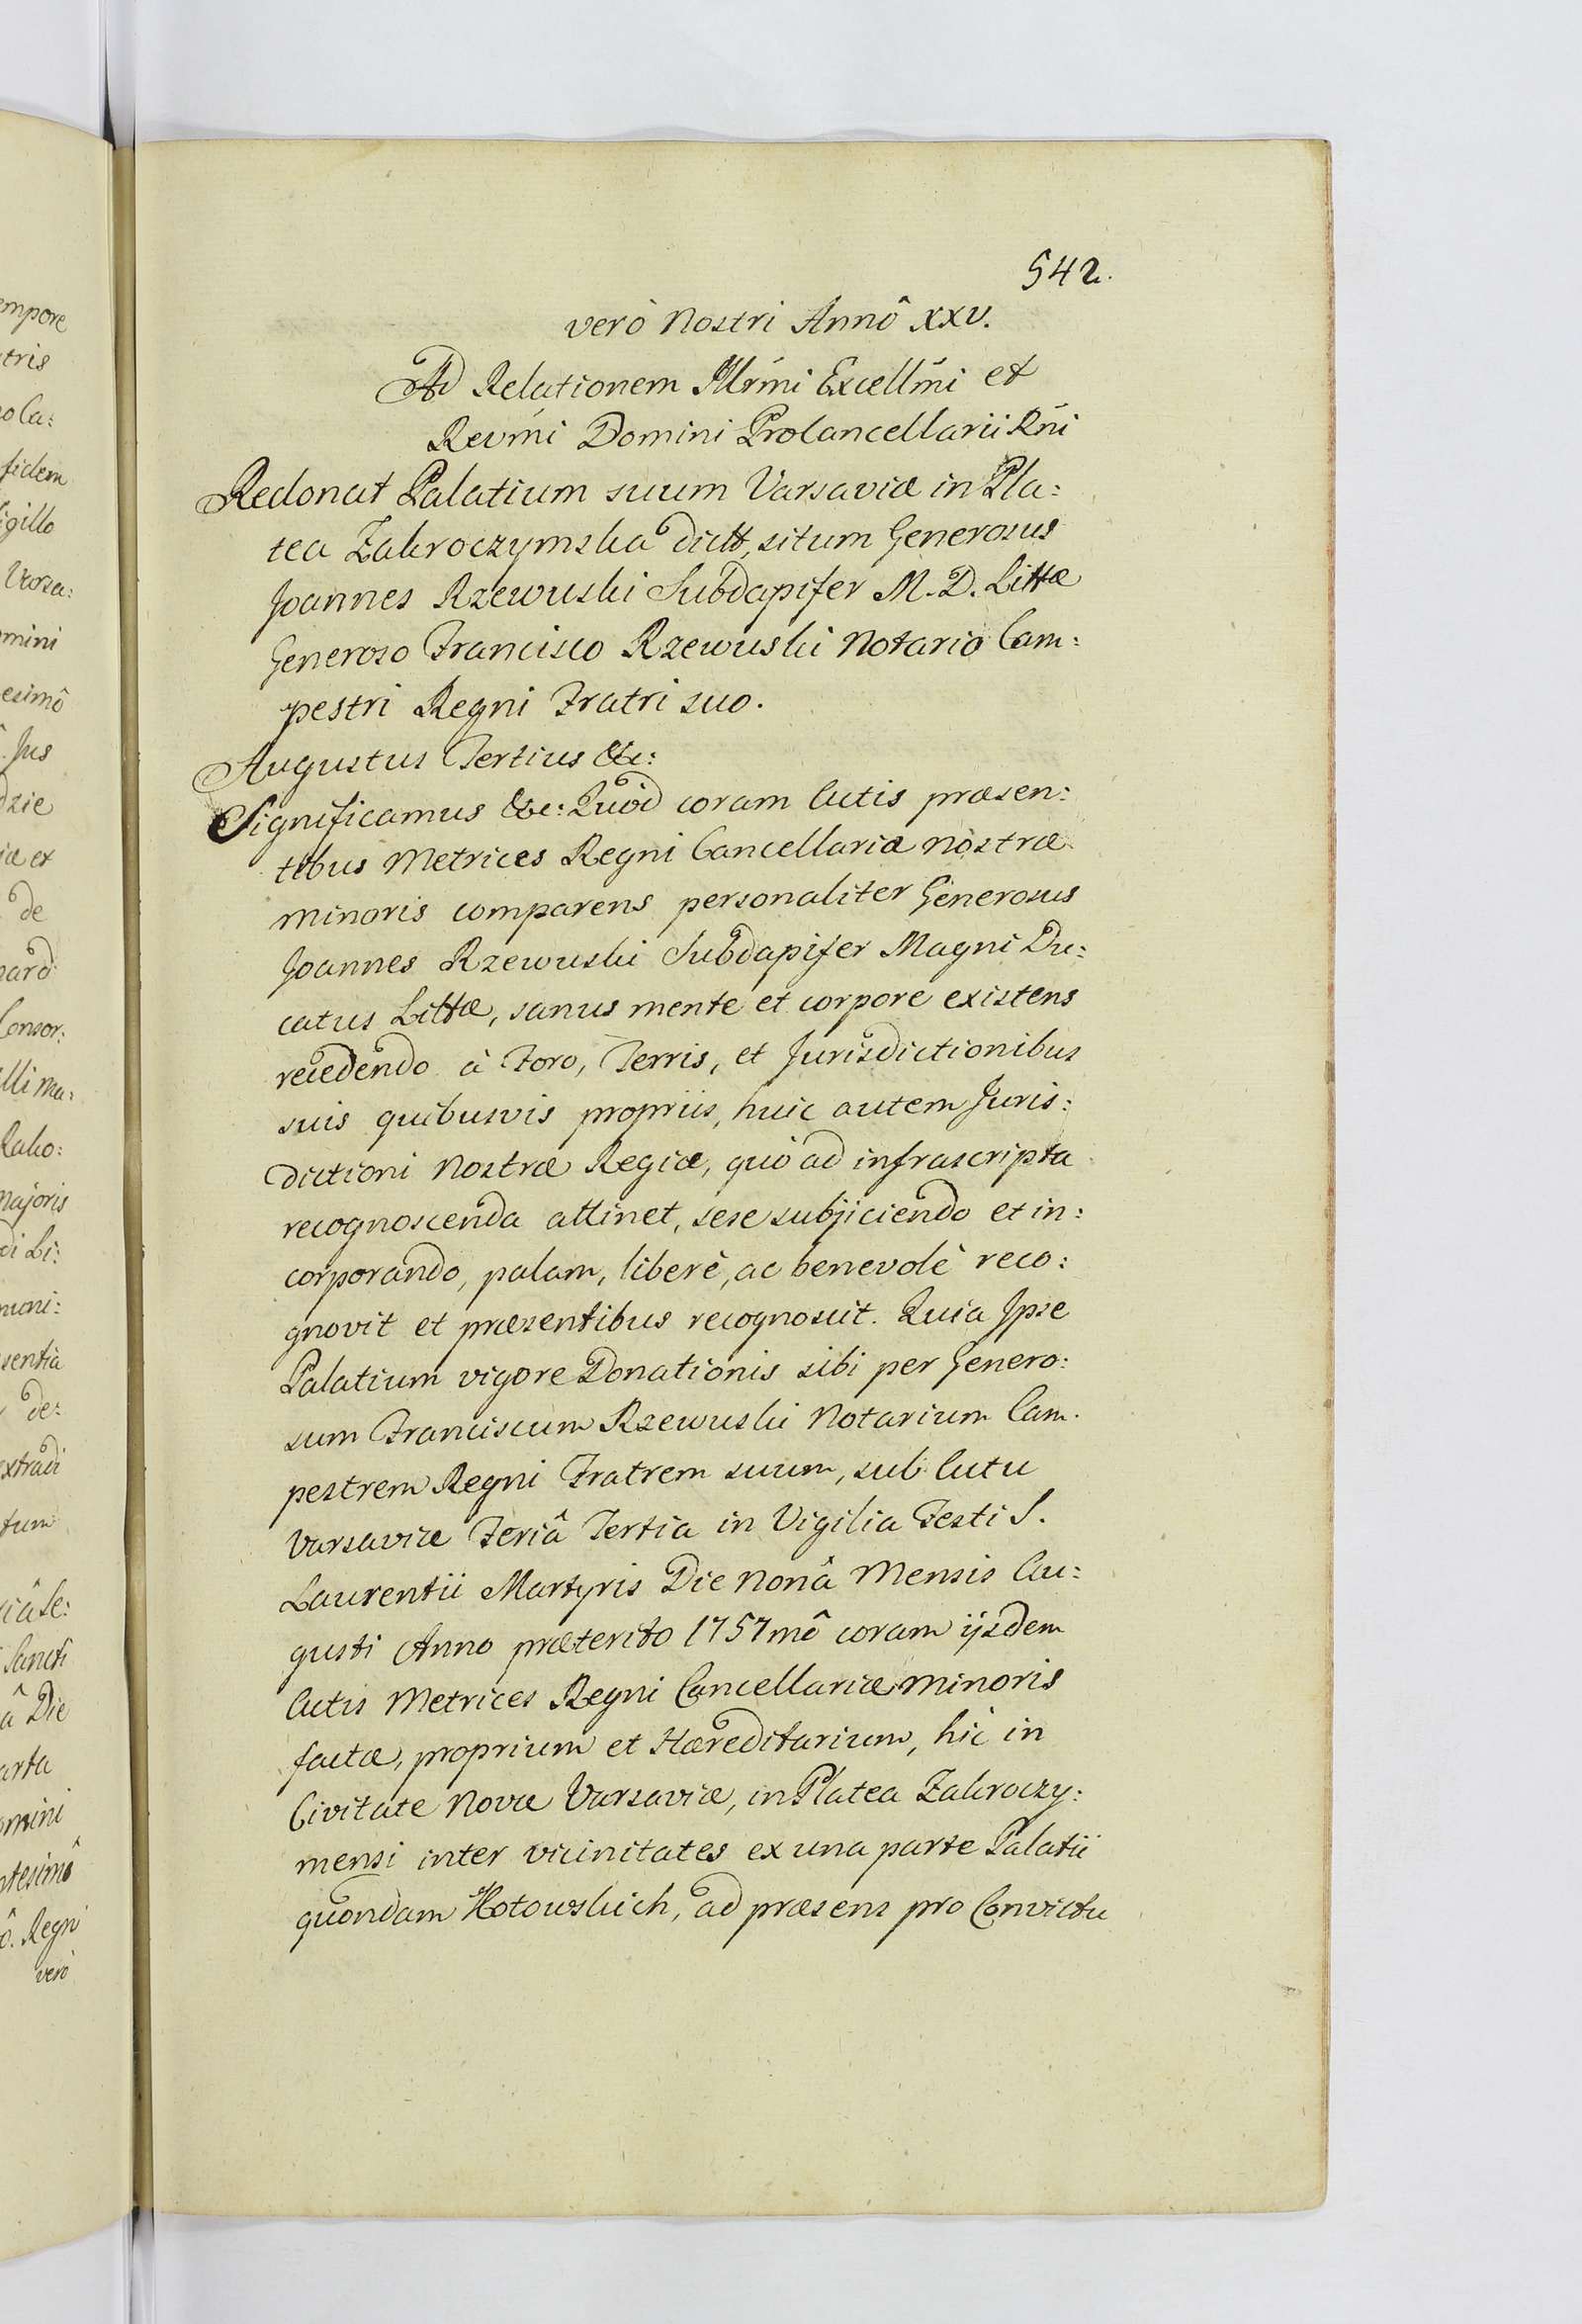 542.
verò Nostri Annô XXV.
Ad Relationem Illrmi Excellmi et
Revmi Domini Procancellarii Rni
Redonat Palatium suum Varsaviæ in Pla:
tea Zakroczymska dictt, situm Generosus
Joannes Rzewuski Subdapifer M. D. Littæ
Generoso Francisco Rzewuski Notario Cam:
pestri Regni Fratri suo.
Augustus Tertius &c:
Significamus &c: Quòd coram Actis præsen:
tibus Metrices Regni Cancellariæ nostræ
minoris comparens personaliter Generosus
Joannes Rzewuski Subdapifer Magni Du:
catus Littæ, sanus mente et corpore existens
recedendo à Foro, Terris, et Jurisdictionibus
suis quibusvis propriis, huic autem Juris:
dictioni Nostræ Regiæ, quò ad infrascripta
recognoscenda attinet, sese subjiciendo et in:
corporando, palam, liberè, ac benevolè reco:
gnovit et præsentibus recognoscit. Quia Ipse
Palatium vigore Donationis sibi per Genero:
sum Franciscum Rzewuski Notarium Cam.
pestrem Regni Fratrem suum, sub Actu
Varsaviæ Feriâ Tertia in Vigilia Festi S.
Laurentii Martyris Die Nonâ Mensis Au:
gusti Anno præterito 1757mô coram ijsdem
Actis Metrices Regni Cancellariæ Minoris
factæ, proprium et Hæreditarium, hic in
Civitate Nova Varsaviæ, in Platea Zakroczy:
mensi inter vicinitates ex una parte Palatii
quondam Kotowskich, ad præsens pro Convictu
empore
tris
fidem
igillo
Varsa:
mini
esimô
Jus
dzie
iæ et
de
Consor:
majoris
di Li:
sentia
de:
extradi
tum
Sancti
â Die
arta
omini
ntesimô
ô. Regni
verò